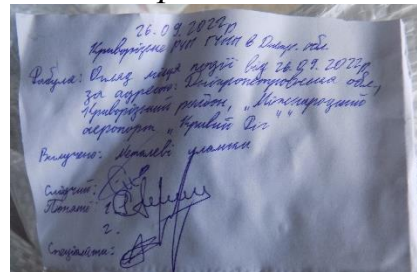 26.09.2022р
Криворізьке РУП ГУНП в Дніпр. обл.
Фабула: Огляд місця події від 26.09.2022р,
за адресою: Дніпропетровська обл,
Криворізький район, „Міжнародний
аеропорт „Кривий Ріг""
Вилучено: Металеві уламки
Слідчий:
Поняті 1.
2.
Спеціаліст: